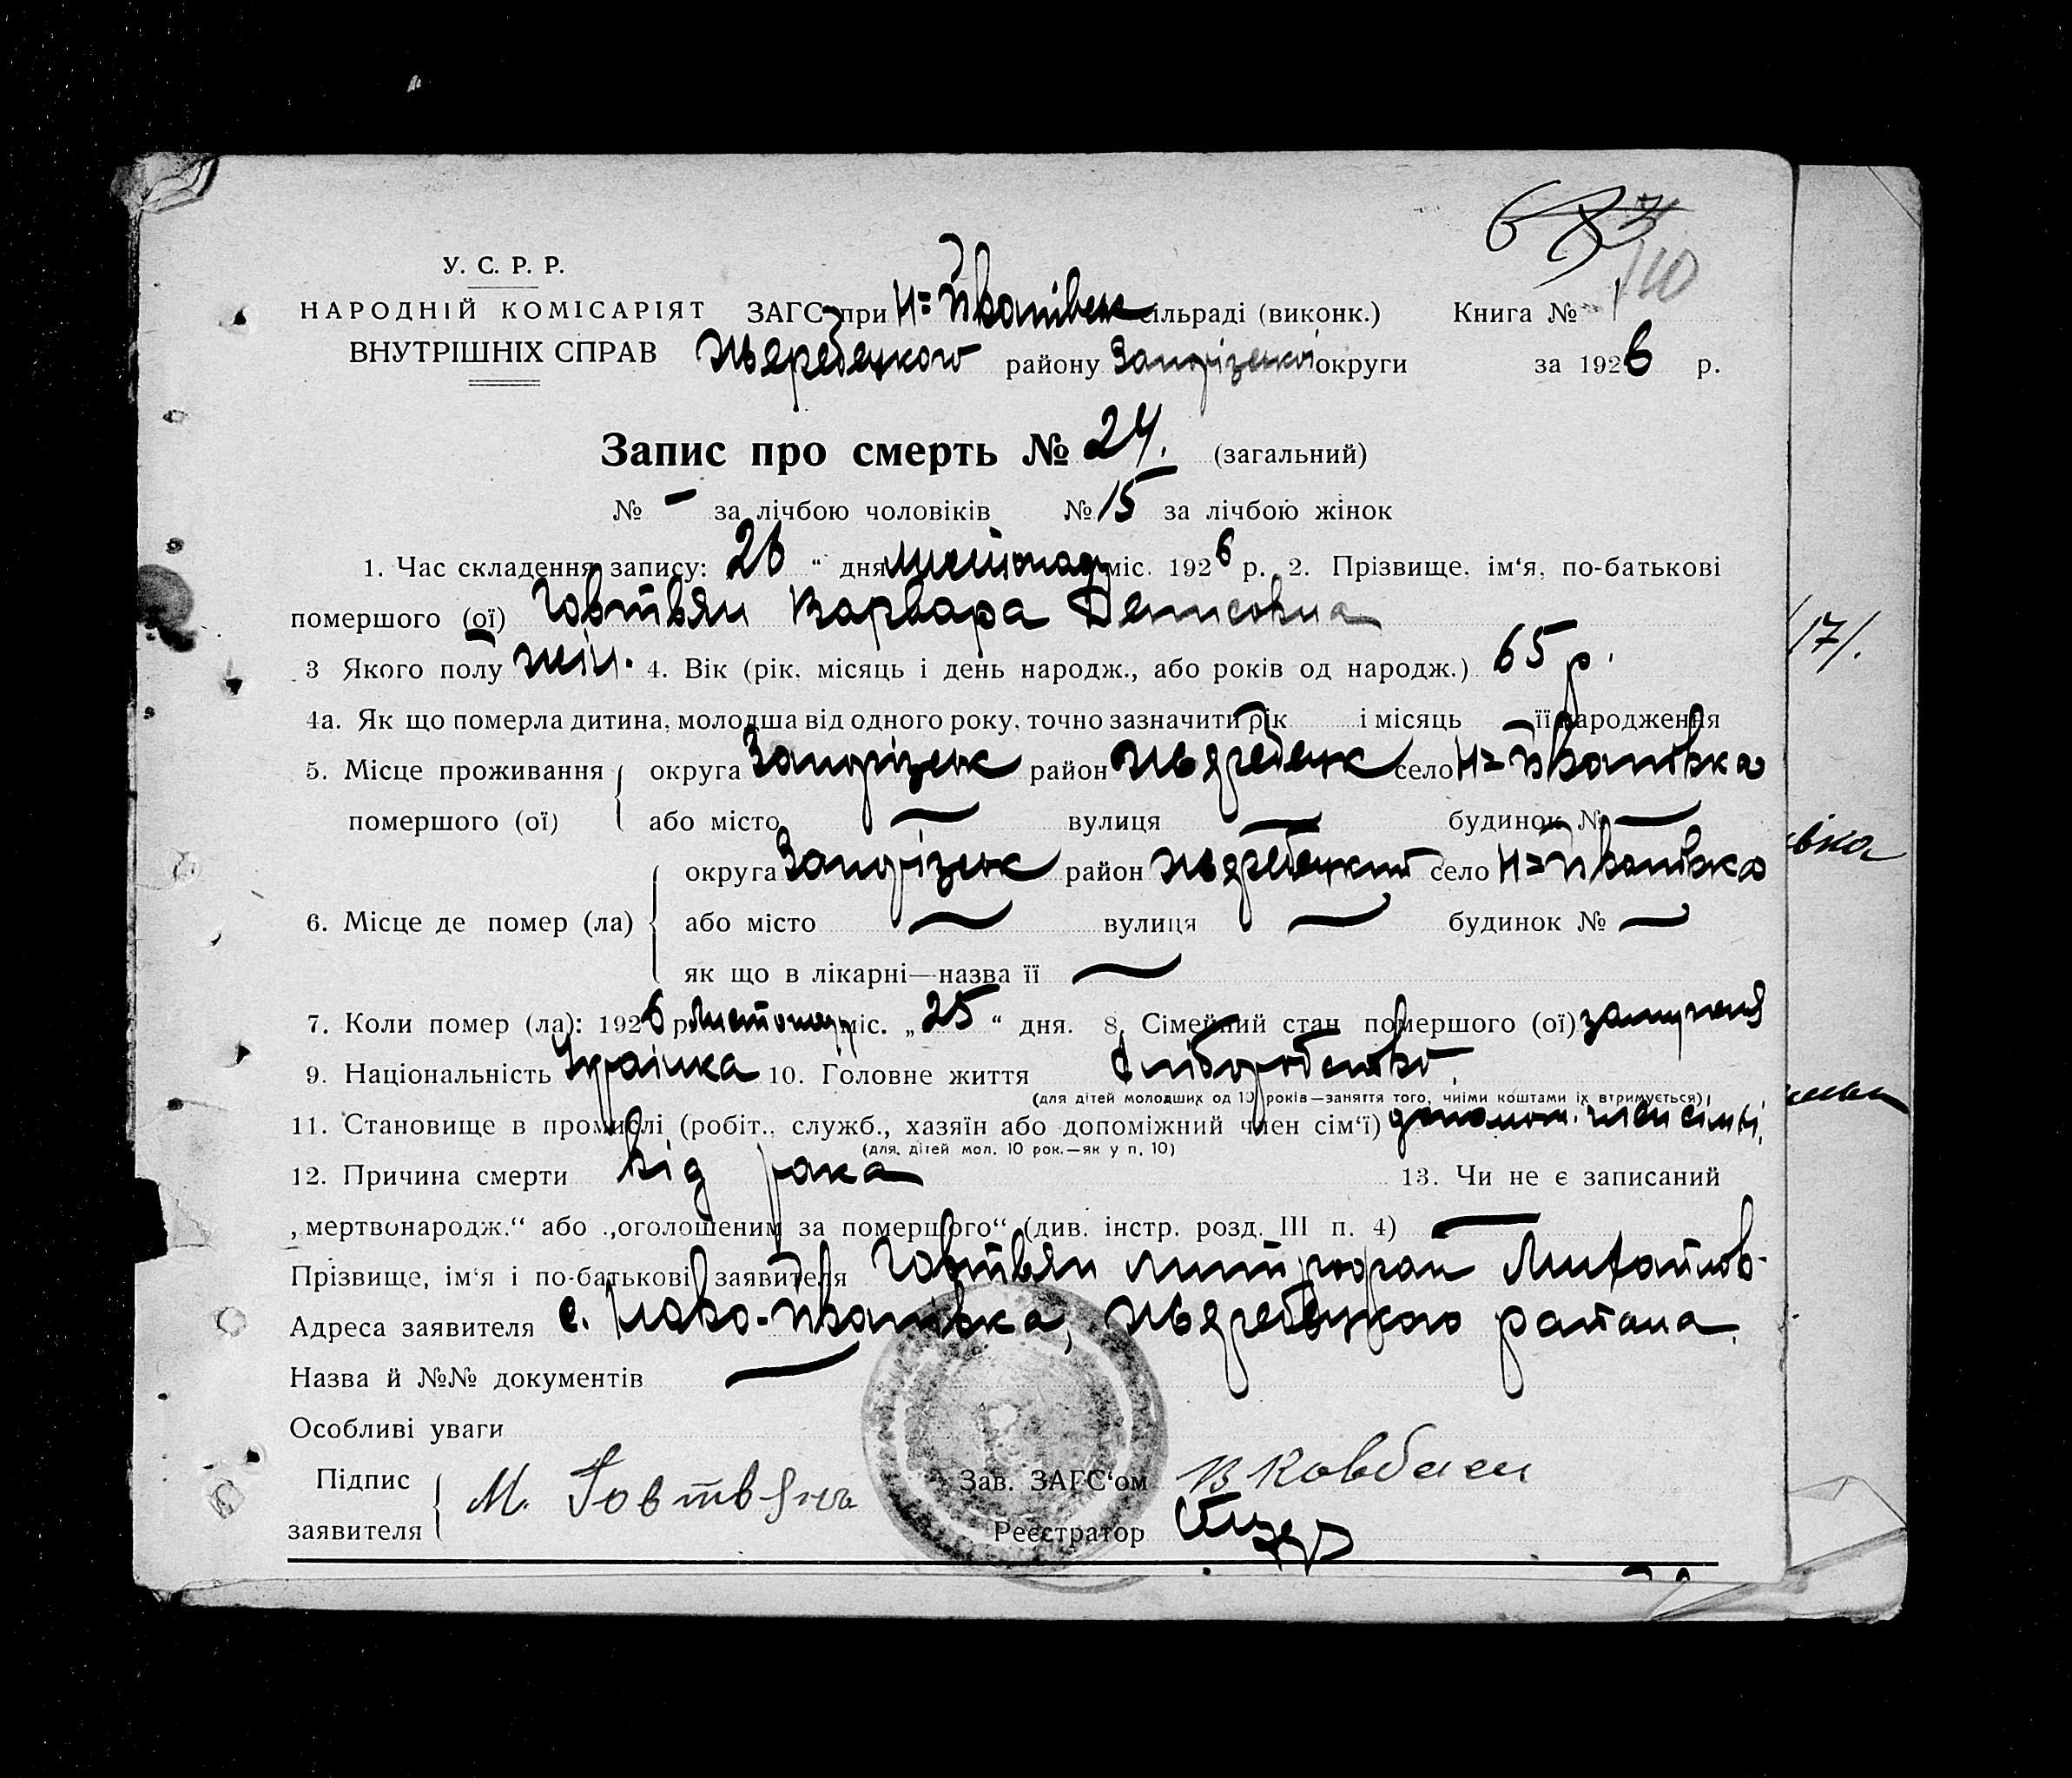 683
110
У. С. Р. Р.
НАРОДНІЙ КОМІСАРІЯТ ЗАГС при Н=Іванівск сільраді (виконк.) Книга № 1
ВНУТРІШНІХ СПРАВ Жеребецкого району Запорізської округи за 1926 р.
Запис про смерть № 24. (загальний)
№ - за лічбою чоловіків № 15 за лічбою жінок
1. Час складення запису: 26 “ дня листопад міс. 1926 р. 2. Прізвище, ім‘я, по-батькові
помершого (ої) Говтвян Варвара Денисовна
3 Якого полу жін. 4. Вік (рік. місяць і день народж., або років од народж.) 65 р.
4а. Як що померла дитина, молодша від одного року, точно зазначити рік і місяць її народження
5. Місце проживання округа Запорізськ район Жеребецк село Н=Іванівка
помершого (ої) або місто — вулиця — будинок № —
округа Запорізськ район Жеребецкий село Н=Іванівка
6. Місце де помер (ла) або місто — вулиця — будинок № —
як що в лікарні—назва її —
7. Коли помер (ла): 1926 р. листопад міс. „25“ дня. 8. Сімейний стан помершого (ої) замужня
9. Національність Украінка 10. Головне життя хліборобство
(для дітей молодших од 10 років—заняття того, чиїми коштами їх втримується)
11. Становище в промислі (робіт., служб., хазяїн або допоміжний член сім‘ї) допомож. член сімьі,
(для, дітей мол. 10 рок.—як у п. 10)
12. Причина смерти від рака 13. Чи не є записаний
„мертвонародж.“ або „оголошеним за померщого“ (див. інстр. розд. III п. 4) —
Прізвище, ім‘я і по-батькові заявителя Говтвян Митрофан Михайлов-
Адреса заявителя с. Ново-Іванівка, Жеребецкого района.
Назва й №№ документів —
Особливі уваги
Підпис заявителя М. Говтвянь
Зав. ЗАГС‘ом
Реєстратор
17/.
івка